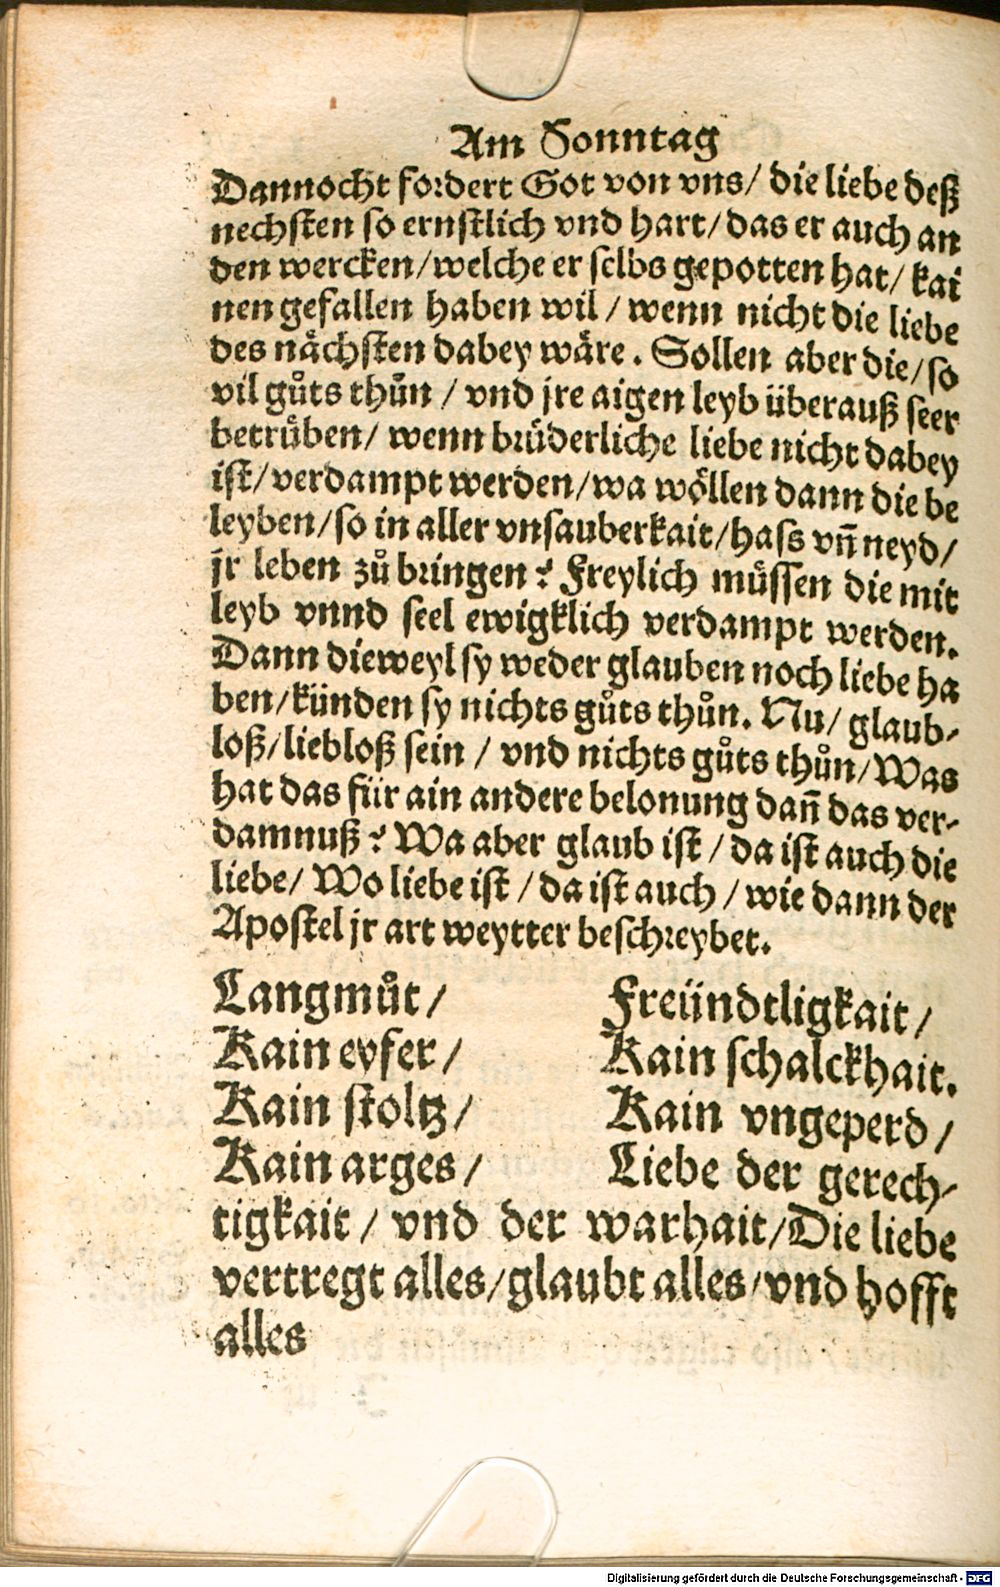 Am Sonntag
Dannocht fordert Got von vns/ die liebe deß
nechsten so ernstlich vnd hart/ das er auch an
den wercken/welche er selbs gepotten hat/ kai
nen gefallen haben wil / wenn nicht die liebe
des nåchsten dabey wäre. Sollen aber die/so
vil gůts thůn / vnd jre aigen leyb überauß seer
betrüben/ wenn brüderliche liebe nicht dabey
ist/verdampt werden/wa wöllen dann die be
leyben/so in aller vnsauberkait/hass vn̄ neyd/
jr leben zů bringen? Freylich müssen die mit
leyb vnnd seel ewigklich verdampt werden.
Dann dieweyl sy weder glauben noch liebe ha
ben/künden sy nichts gůts thůn. Nu/ glaub-
loß/liebloß sein / vnd nichts gůts thůn/Was
hat das für ain andere belonung dan̄ das ver-
damnuß? Wa aber glaub ist / da ist auch die
liebe/ Wo liebe ist / da ist auch / wie dann der
Apostel jr art weytter beschreybet.
Langmůt/ Freündtligkait/
Kain eyfer/ Kain schalckhait.
Kain stoltz/ Kain vngeperd/
Kain arges/ Liebe der gerech-
tigkait / vnd der warhait/Die liebe
vertregt alles/glaubt alles/vnd hofft
alles
Digitalisierung gefördert durch die Deutsche Forschungsgemeinschaft - DFG